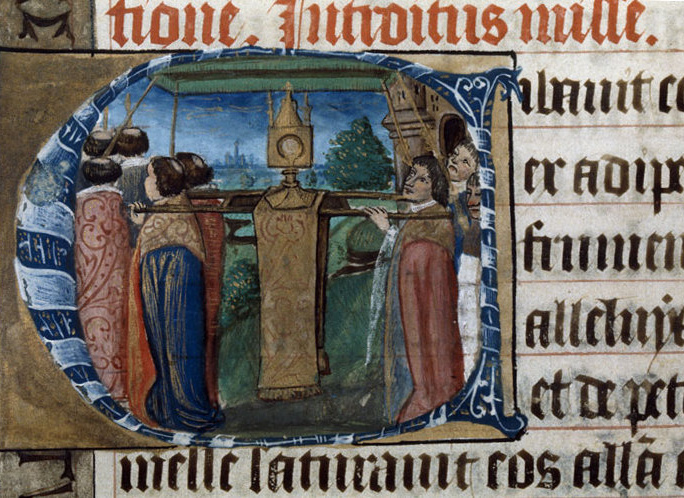 tione. Introitus misse.
Cibauit eo
ex adipe
frumen
alleluya
et de pet
melle saturauit eos alla